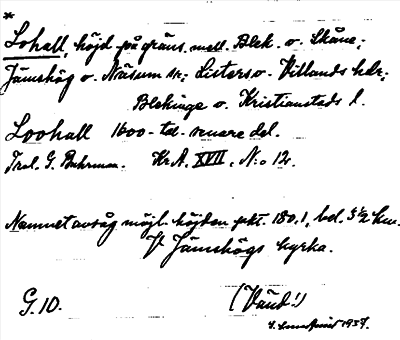 *
Lohall, höjd på gräns. mell. Blek. o. Skåne;
Jämshög o. Näsum sr; Listers o. Villands hdr;
Blekinge o. Kristianstads l.
Loohall 1600-tal-senare del.
Trol. G. Buhrman. Kr.A. XVII, N:o 12.
Namnet avsåg möjl. höjden pkt. 180.1, bel. 3½ km.
V Jämshögs kyrka.
G. 10. (Vänd!)
1937.